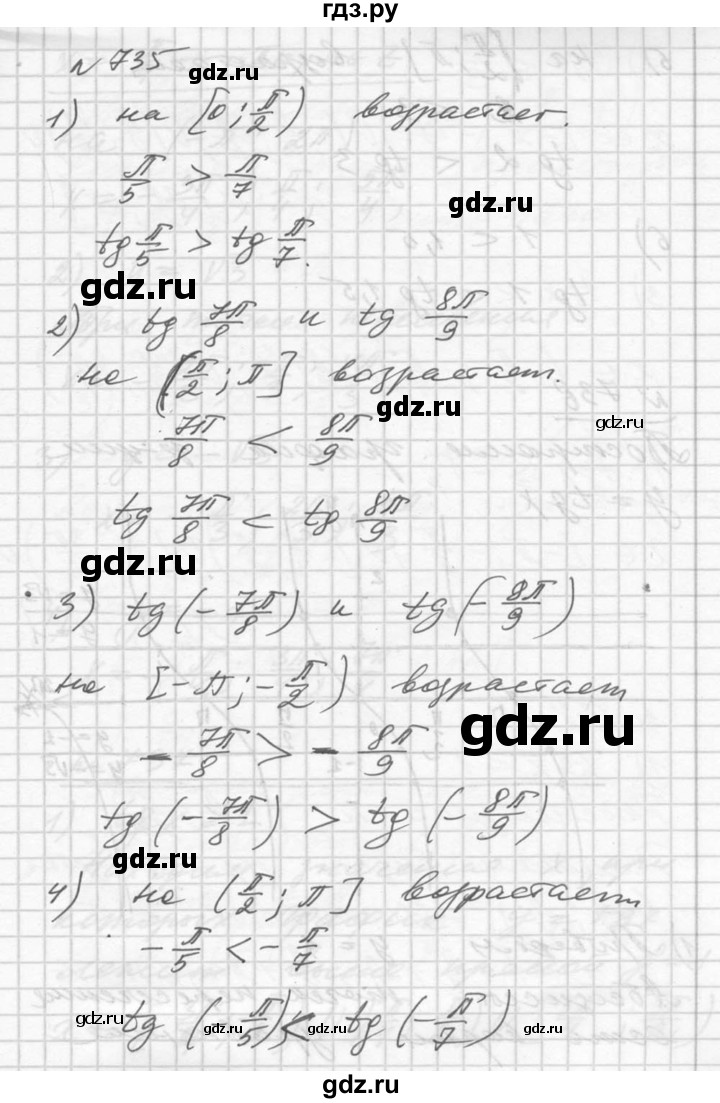 гдз.ру
№ 735
gdz.ru
1) на [0; π/2) возрастает.
π/5 > π/7
gdz.ru
tg π/5 > tg π/7.
gdz.ru
2) tg 7π/8 и tg 8π/9
на (π/2; π] возрастает.
gdz.ru
gdz.ru
7π/8 < 8π/9
tg 7π/8 < tg 8π/9
gdz.ru
3) tg(-7π/8) и tg(-8π/9)
на [-π; -π/2) возрастает
gdz.ru
-7π/8 > -8π/9
tg(-7π/8) > tg(-8π/9)
gdz.ru
4) на (π/2; π] возрастает
-π/5 < -π/7
gdz.ru gdz.ru gdz.ru
tg(-π/5) < tg(-π/7)
gdz.ru